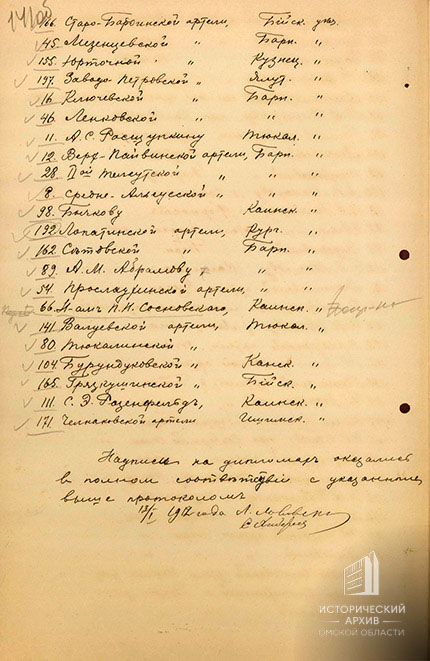 166. Старо-Бардинской артели, Бійск. уез.
145. Мезенцевской " Барн. "
155. Юрточной " Кузнец. "
197. Заводо-Петровской " Ялут. "
16. Ключевской " Барн. "
46. Ленковской " " "
11. А.С. Расщупкину Тюкал. "
12. Верх-Пайвинской артели, Барн. "
28. IIой Телеутской " " "
8. Средне- " " "
98. Бычкову Каинск. "
192. Лопатинской артели, Кург. "
162. Сѣтовской " Барн. "
89. А.М. Абрамову, " "
54. Прослаухинской артели, " "
66. Н-амъ П.И. Сосновскаго, Каинск. "
141. Валуевской артели, Тюкал. "
80. Тюкалинской " "
104. Бурундуковской " Каинск. "
165. Грязнушинской " Бійск. "
111. С.Э. Розенфельдъ, Каинск. "
171. Челнаковской артели Ишимск. "
Надписи на дипломахъ оказались
въ полномъ соотвѣтствіи с указаннымъ
выше протоколомъ
13/I 1912 года
ИСТОРИЧЕСКИЙ
АРХИВ
ОМСКОЙ ОБЛАСТИ